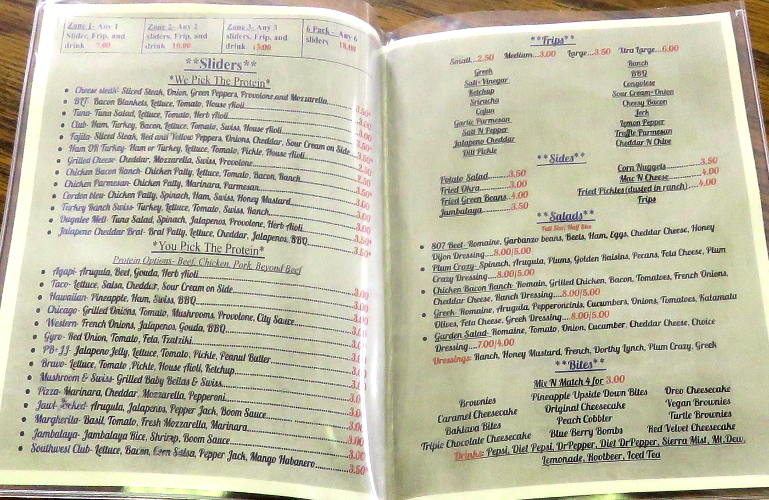 Zone 1- Any 1 Slider, Frip, and drink 7.00
Zone 2- Any 2 sliders, Frip, and drink 10.00
Zone 3- Any 3 sliders, Frip, and drink 13.00
6 Pack - Any 6 sliders 18.00
**Sliders**
*We Pick The Protein*
Cheese steak- Sliced Steak, Onion, Green Peppers, Provolone and Mozzarella
BLT- Bacon Blankets, Lettuce, Tomato, House Aioli
Tuna- Tuna Salad, Lettuce, Tomato, Herb Aioli
Club- Ham, Turkey, Bacon, Lettuce, Tomato, Swiss, House Aioli
Fajita- Sliced Steak, Red and Yellow Peppers, Onions, Cheddar, Sour Cream on Side
Ham OR Turkey- Ham or Turkey, Lettuce, Tomato, Pickle, House Aioli
Grilled Cheese- Cheddar, Mozzarella, Swiss, Provolone
Chicken Bacon Ranch- Chicken Patty, Lettuce, Tomato, Bacon, Ranch
Chicken Parmesan- Chicken Patty, Marinara, Parmesan
Cordon bleu- Chicken Patty, Spinach, Ham, Swiss, Honey Mustard
Turkey Ranch Swiss- Turkey, Lettuce, Tomato, Swiss, Ranch
Dugalee Melt- Tuna Salad, Spinach, Jalapenos, Provolone, Herb Aioli
Jalapeno Cheddar Brat- Brat Patty, Lettuce, Cheddar, Jalapenos, BBQ
*You Pick The Protein*
Protein Options- Beef, Chicken, Pork, Beyond Beef
Agapi- Arugula, Beef, Gouda, Herb Aioli
Taco- Lettuce, Salsa, Cheddar, Sour Cream on Side
Hawaiian- Pineapple, Ham, Swiss, BBQ
Chicago- Grilled Onions, Tomato, Mushrooms, Provolone, City Sauce
Western- French Onions, Jalapenos, Gouda, BBQ
Gyro- Red Onion, Tomato, Feta, Tzatziki
PB-JJ- Jalapeno Jelly, Lettuce, Tomato, Pickle, Peanut Butter
Bravo- Lettuce, Tomato, Pickle, House Aioli, Ketchup
Mushroom & Swiss- Grilled Baby Bellas & Swiss
Pizza- Marinara, Cheddar, Mozzarella, Pepperoni
Jawl-Jocked- Arugula, Jalapenos, Pepper Jack, Boom Sauce
Margherita- Basil, Tomato, Fresh Mozzarella, Marinara
Jambalaya- Jambalaya Rice, Shrimp, Boom Sauce
Southwest Club- Lettuce, Bacon, Corn Salsa, Pepper Jack, Mango Habanero
**Frips**
Small...2.50 Medium...3.00 Large...3.50 Xtra Large...6.00
Greek
Salt-Vinegar
Ketchup
Sriracha
Cajun
Garlic Parmesan
Salt N Pepper
Jalapeno Cheddar
Dill Pickle
Ranch
BBQ
Congolese
Sour Cream-Onion
Cheesy Bacon
Jerk
Lemon Pepper
Truffle Parmesan
Cheddar N Chive
**Sides**
Potato Salad...3.50
Fried Okra...3.00
Fried Green Beans...4.00
Jambalaya...3.50
Corn Nuggets...3.50
Mac N Cheese...4.00
Fried Pickles(dusted in ranch)...4.00
Frips
**Salads**
Full Size/Half Size
807 Beet- Romaine, Garbanzo beans, Beets, Ham, Eggs, Cheddar Cheese, Honey
Dijon Dressing...8.00/5.00
Plum Crazy- Spinach, Arugula, Plums, Golden Raisins, Pecans, Feta Cheese, Plum
Crazy Dressing...8.00/5.00
Chicken Bacon Ranch- Romain, Grilled Chicken, Bacon, Tomatoes, French Onions,
Cheddar Cheese, Ranch Dressing...8.00/5.00
Greek- Romaine, Arugula, Pepperonicinis, Cucumbers, Onions, Tomatoes, Kalamata
Olives, Feta Cheese, Greek Dressing...8.00/5.00
Garden Salad- Romaine, Tomato, Onion, Cucumber, Cheddar Cheese, Choice
Dressing...7.00/4.00
Dressings: Ranch, Honey Mustard, French, Dorthy Lynch, Plum Crazy, Greek
**Bites**
Mix N Match 4 for 3.00
Brownies
Caramel Cheesecake
Baklava Bites
Tripie Chocolate Cheesecake
Pineapple Upside Down Bites
Original Cheesecake
Peach Cobbler
Blue Berry Bombs
Oreo Cheesecake
Vegan Brownies
Turtle Brownies
Red Velvet Cheesecake
Drinks: Pepsi, Diet Pepsi, DrPepper, Diet DrPepper, Sierra Mist, Mt.Dew,
Lemonade, Rootbeer, Iced Tea